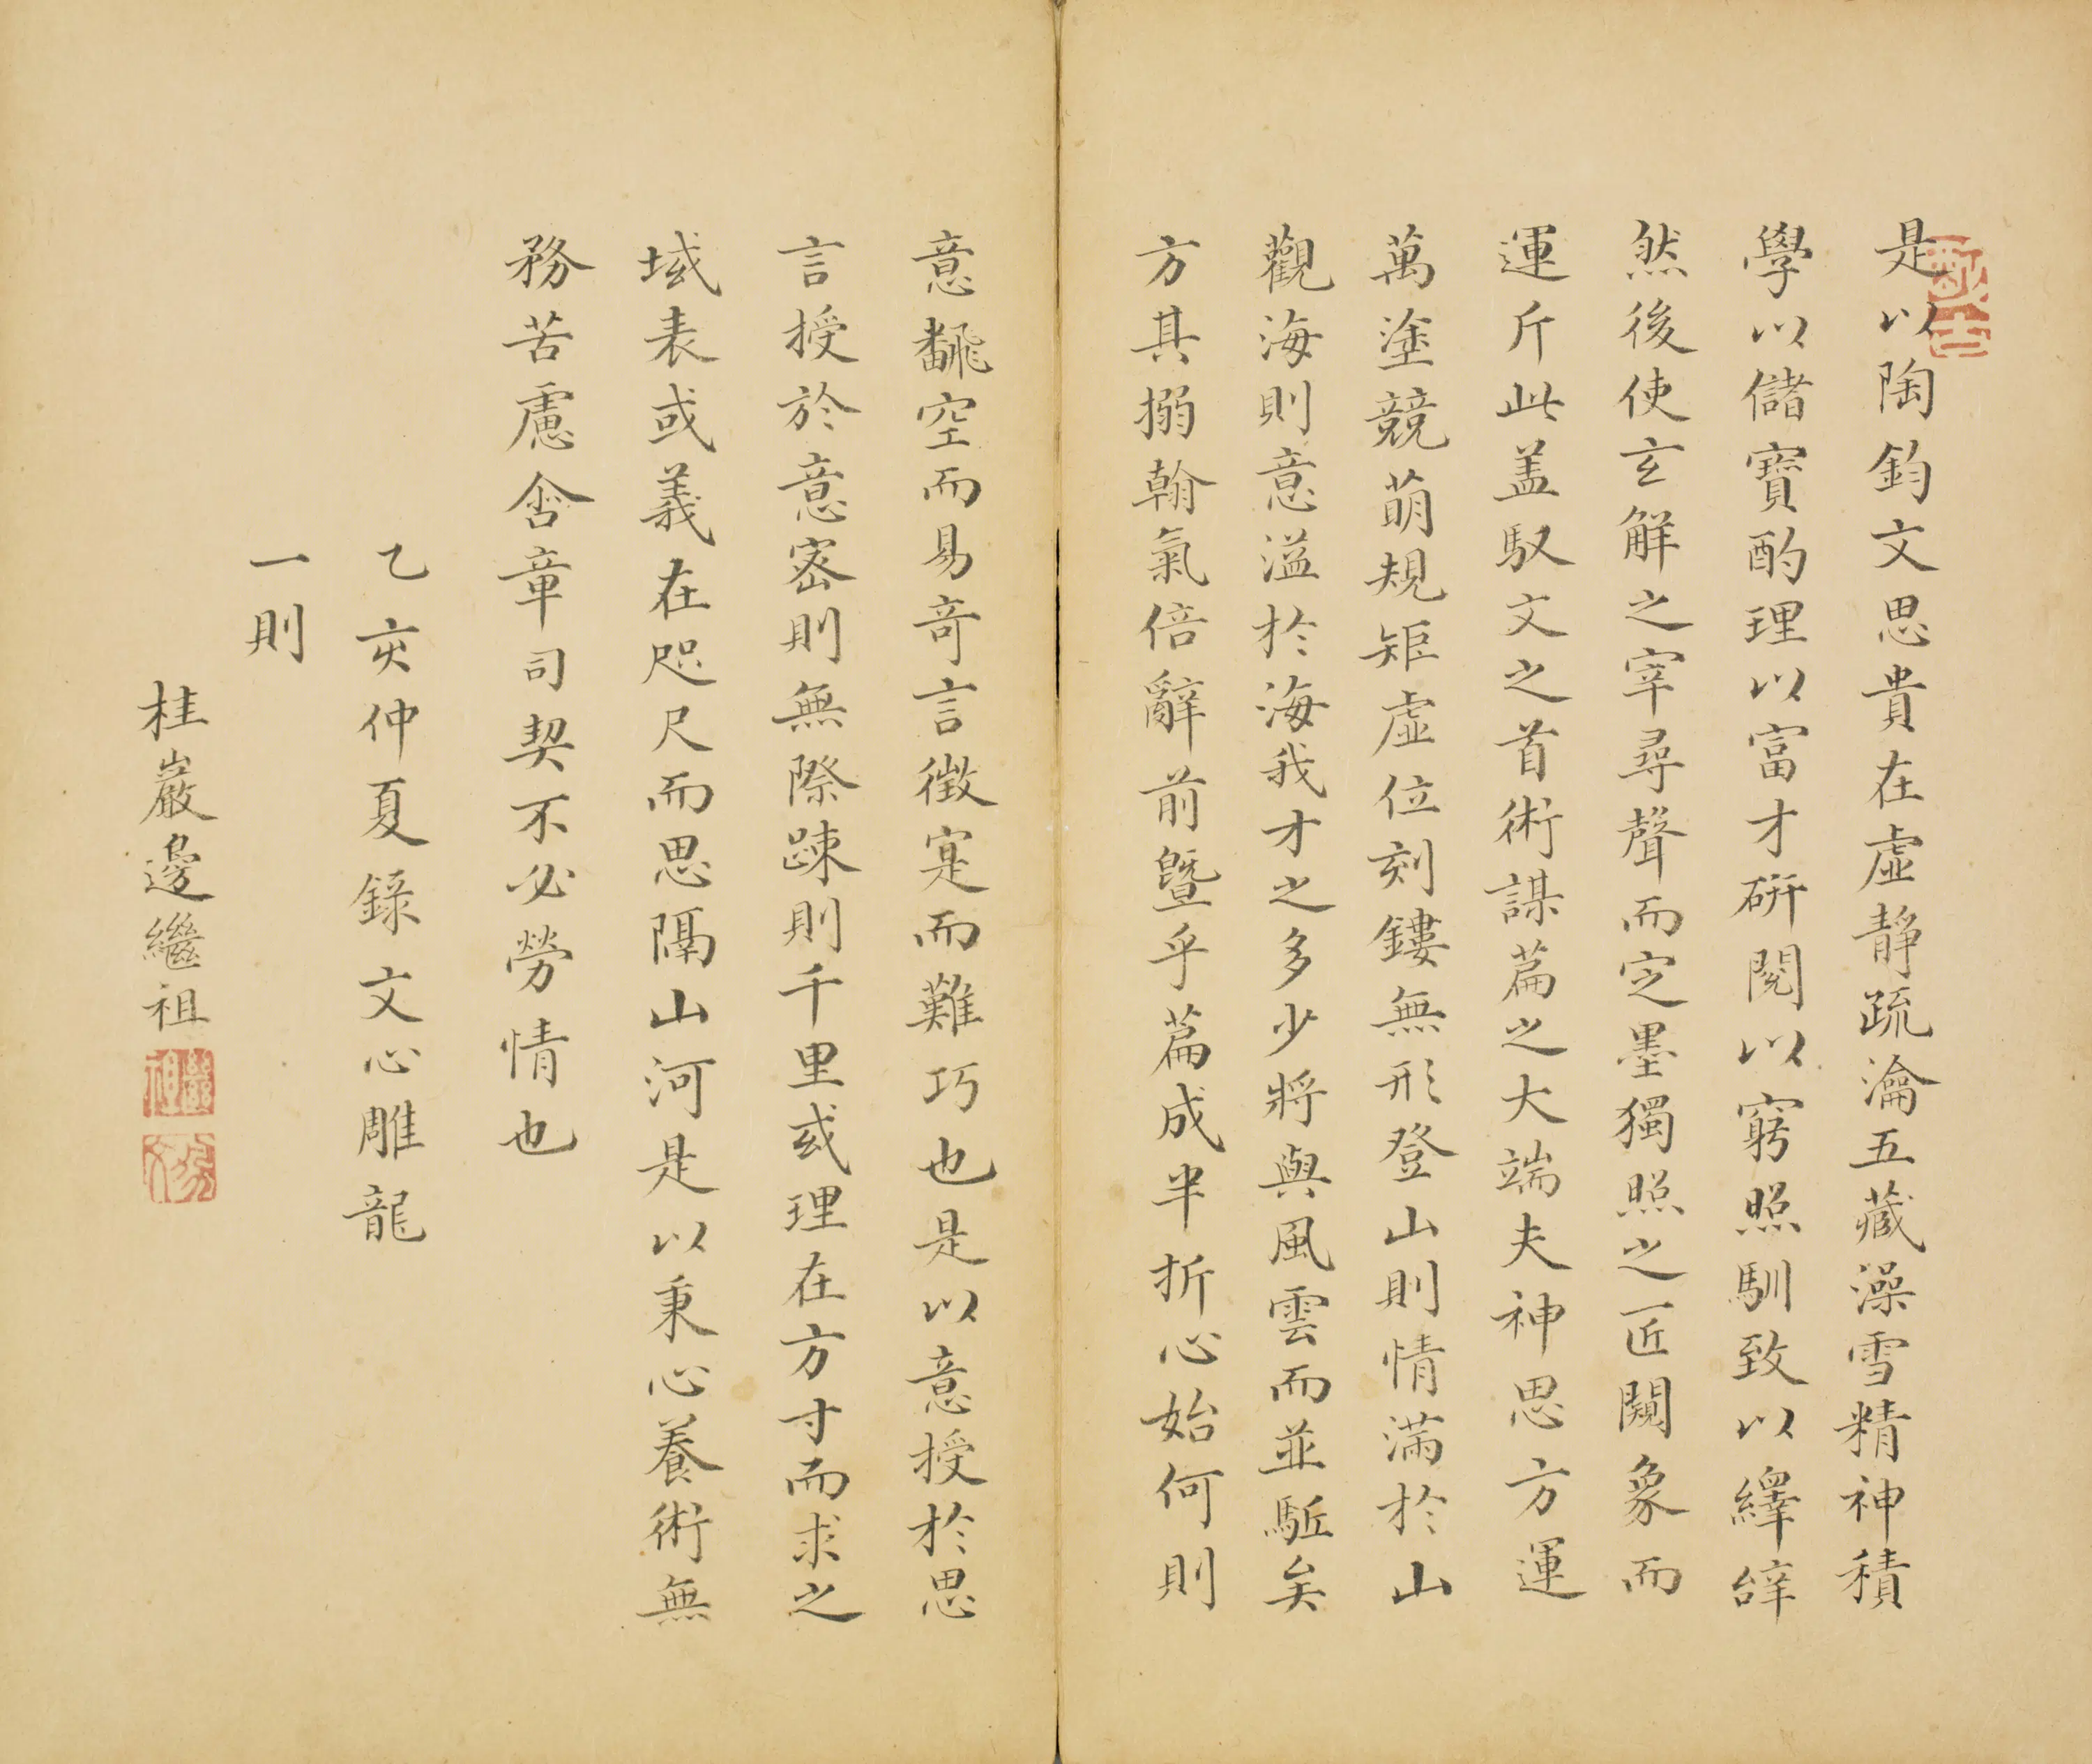 是以陶鈞文思貴在虛靜疏瀹五藏澡雪精神積
學以儲寶酌理以富才硏閱以窮照馴致以繹辝
然後使玄解之宰尋聲而定墨獨照之匠闚象而
運斤此盖馭文之首術謀篇之大端夫神思方運
萬塗競萌規矩虛位刻鏤無形登山則情滿於山
觀海則意溢於海我才之多少將與風雲而並駈矣
方其搦翰氣倍辭前暨乎篇成半折心始何則
意飜空而易奇言徴寔而難巧也是以意授於思
言授於意密則無際踈則千里或理在方寸而求之
域表或義在咫尺而思隔山河是以秉心養術無
務苦慮含章司契不必勞情也
乙亥仲夏錄文心雕龍
一則
桂巖邊繼祖